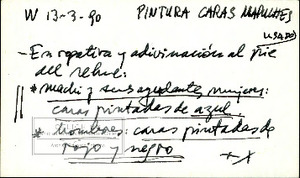 W 13-3-90 PINTURA CARAS MAPUCHES
USADO
- En rogativa y adivinación al pie
del rehue:
* machi y sus ayudantes mujeres:
caras pintadas de azul.
* hombres: caras pintadas de
rojo y negro